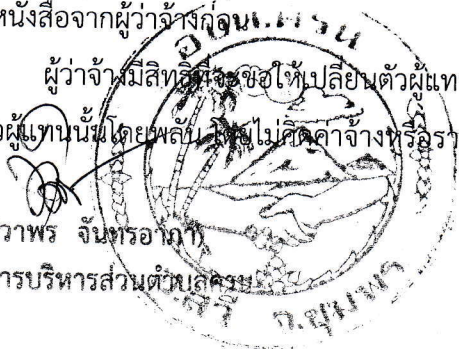 หนังสือจากผู้ว่าจ้างก่อน
อบต.ครน
ผู้ว่าจ้างมีสิทธิที่จะขอให้เปลี่ยนตัวผู้แท
วผู้แทนนั้นโดยพลัน โดยไม่คิดค่าจ้างหรือรา
วาพร จันทรอาภา)
การบริหารส่วนตำบลครน
สวี จ.ชุมพร